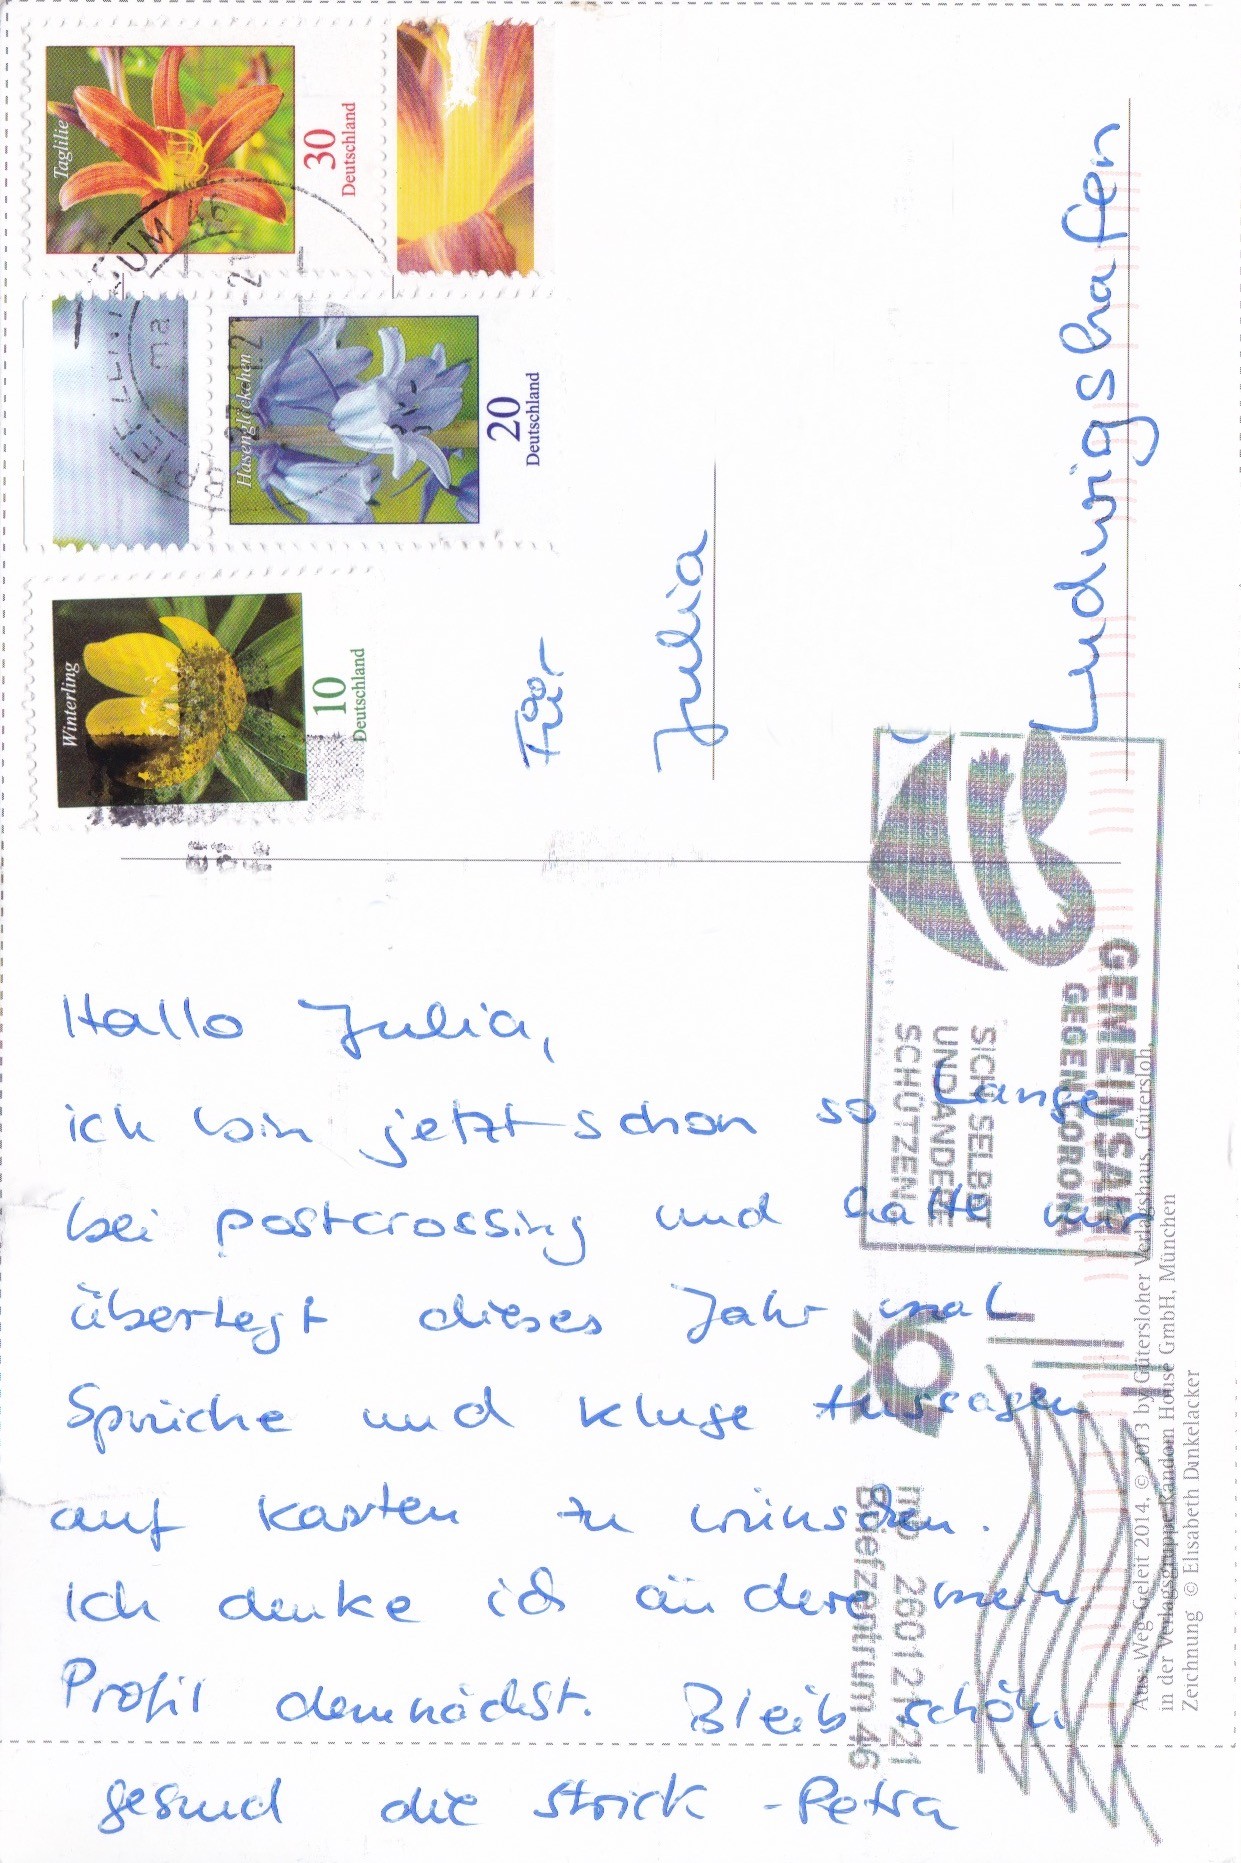 Taglilie
30
Deutschland
Hasenglöckchen
20
Deutschland
Winterling
10
Deutschland
Für
Julia
Ludwigshafen
GEMEINSAM
GEGEN CORONA
SICH SELBST
UND ANDERE
SCHÜTZEN
26012121
Briefzentrum 46
Hallo Julia,
ich bin jetzt schon so Lange
bei postcrossing und hatte mir
überlegt dieses Jahr mal
Sprüche und kluge Aussagen
auf Karten zu wünschen.
Ich denke ich ändere mein
Profil demnächst. Bleib schön
gesund die Strick-Petra
Aus: Weg-Geleit 2014, © 2013 by Gütersloher Verlagshaus, Gütersloh,
in der Verlagsgruppe Random House GmbH, München
Zeichnung © Elisabeth Dinkelacker